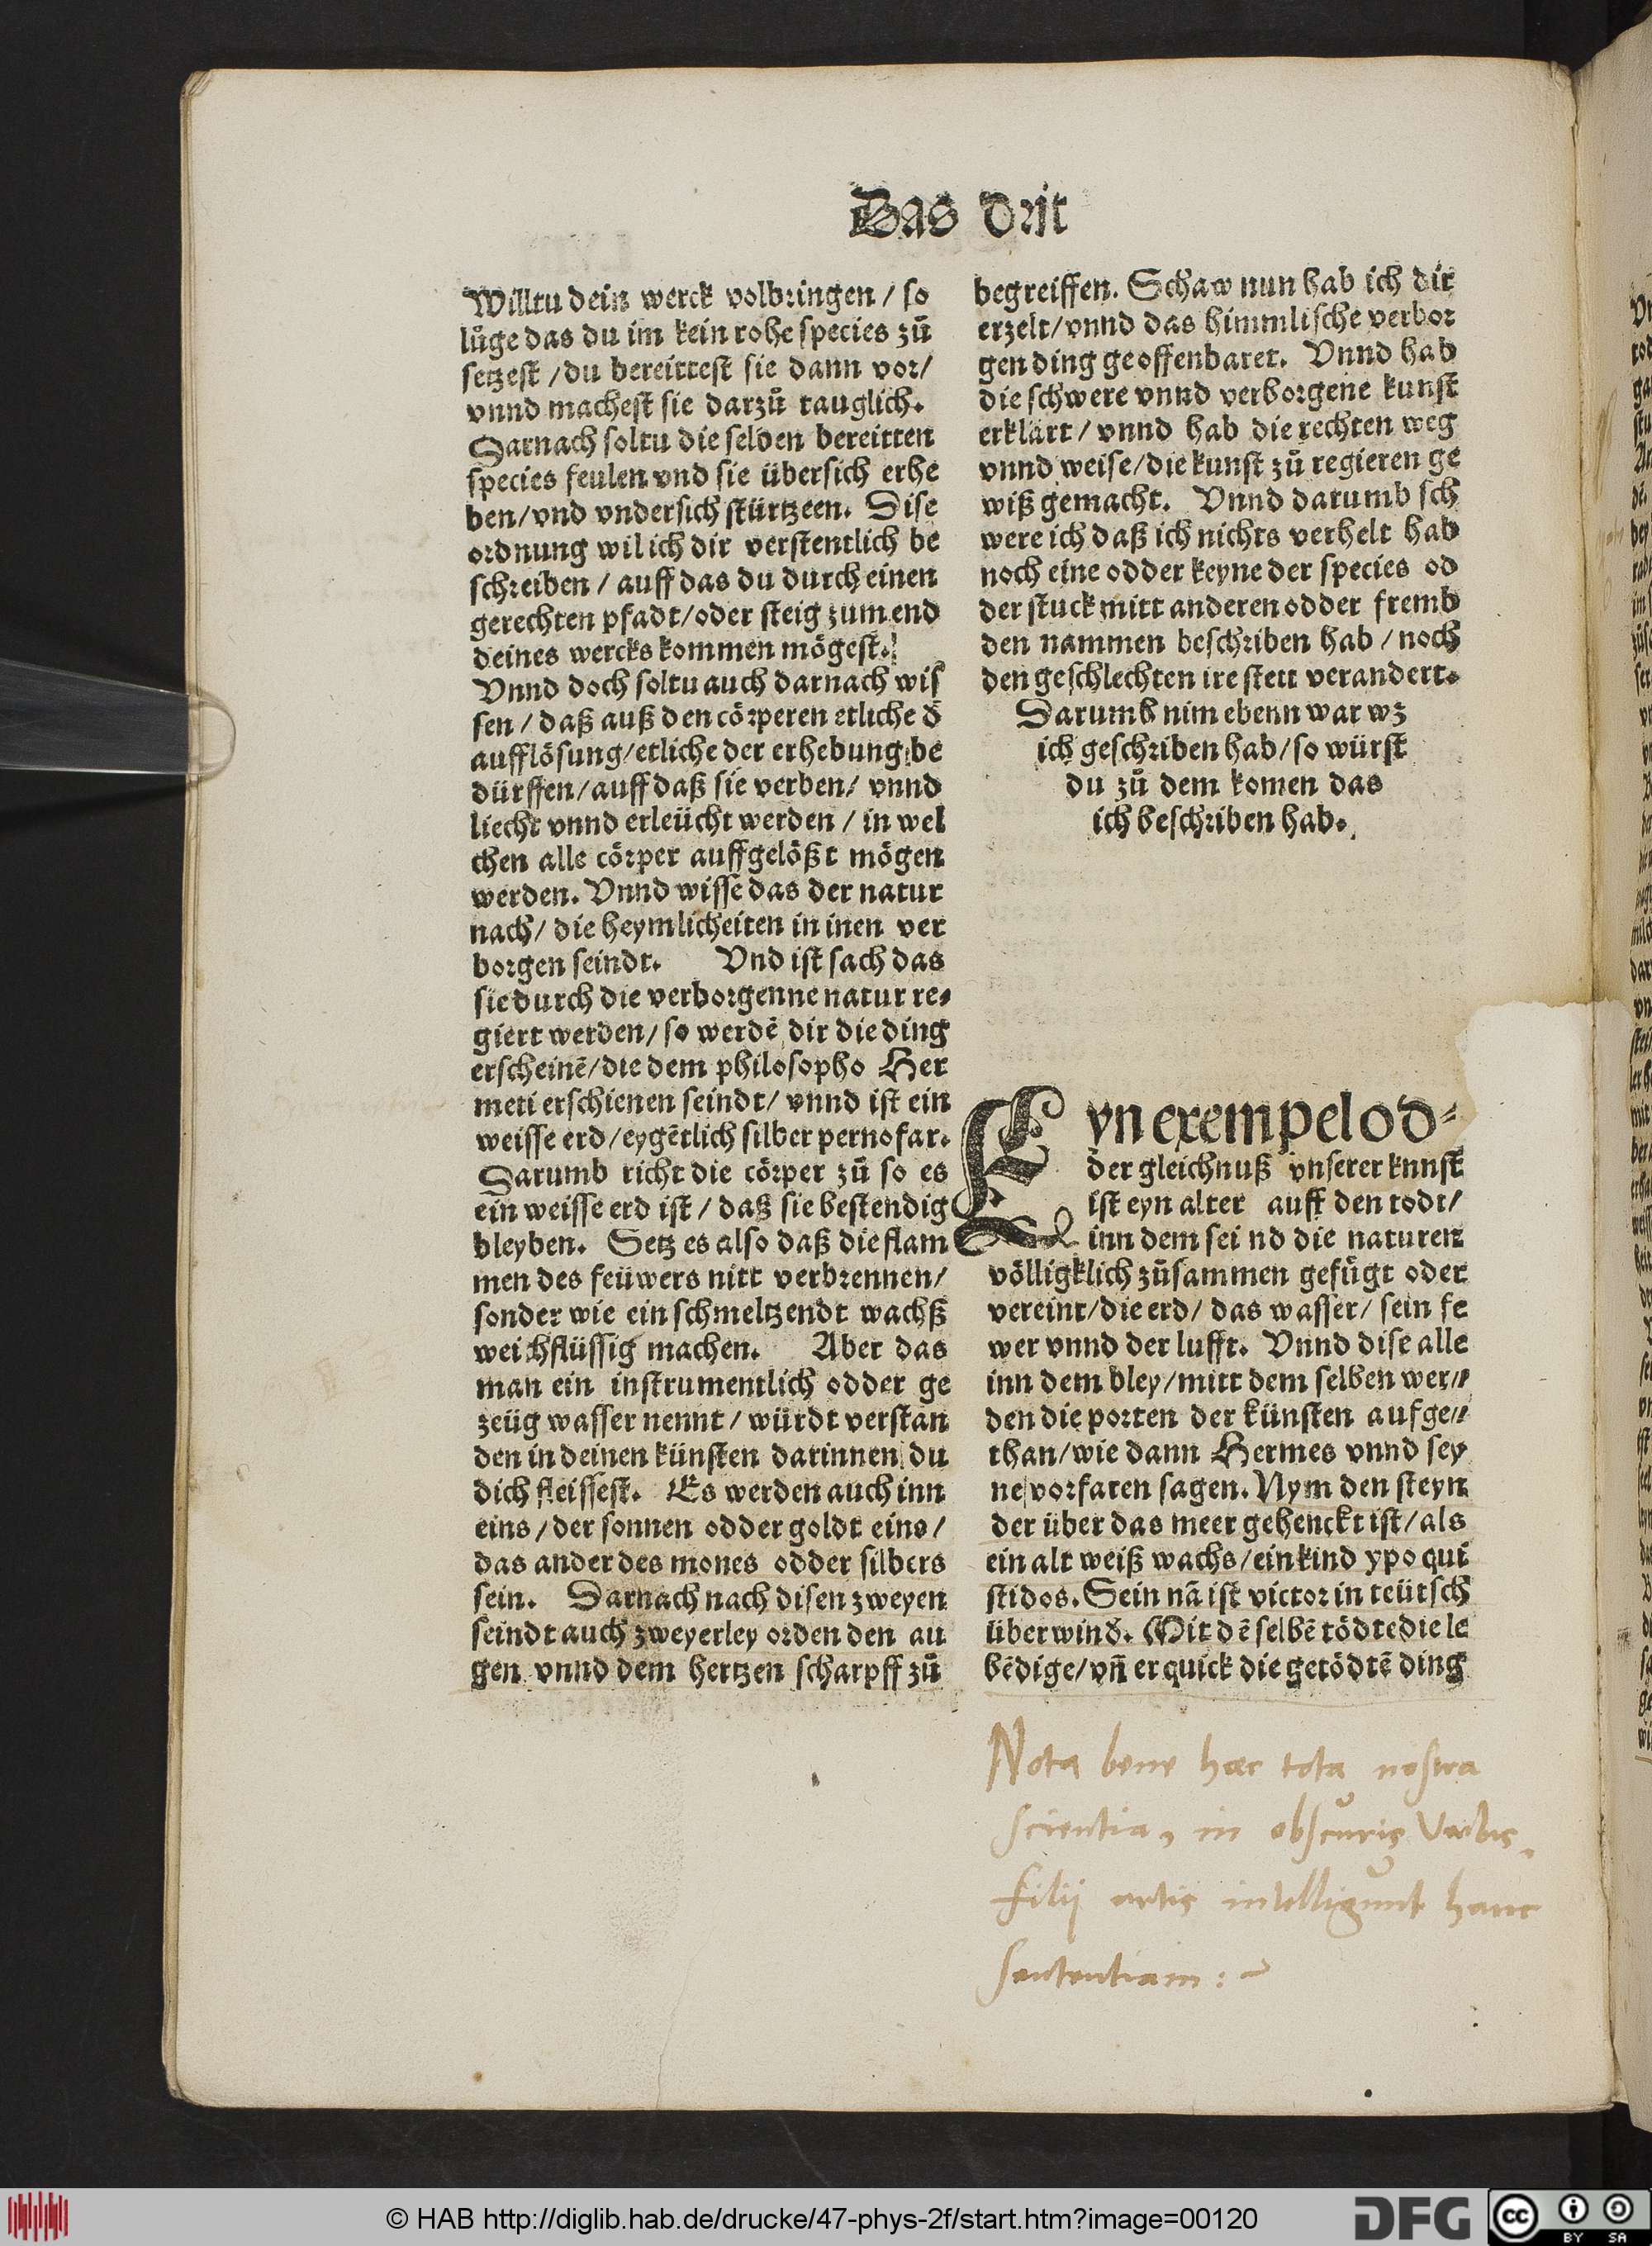 Das drit
Willtu dein werck volbringen / so
lůge das du im kein rohe species zů
setzest / du bereittest sie dann vor /
vnnd machest sie darzů tauglich.
Darnach soltu die selben bereitten
species feulen vnd sie übersich erhe
ben / vnd vndersich stürtzeen. Dise
ordnung wil ich dir verstentlich be
schreiben / auff das du durch einen
gerechten pfadt / oder steig zum end
deines wercks kommen mögest.
Vnnd doch soltu auch darnach wis
sen / daß auß den cörperen etliche d̄
aufflösung / etliche der erhebung be
dürffen / auff daß sie verben / vnnd
liecht vnnd erleücht werden / in wel
chen alle cörper auffgelößt mögen
werden. Vnnd wisse das der natur
nach / die heymlicheiten in inen ver
borgen seindt. Vnd ist sach das
sie durch die verborgenne natur re-
giert werden / so werdē dir die ding
erscheinē / die dem philosopho Her
meti erschienen seindt / vnnd ist ein
weisse erd / eygētlich silber pernofar.
Darumb richt die cörper zů so es
ein weisse erd ist / daß sie bestendig
bleyben. Setz es also daß die flam
men des feüwers nitt verbrennen /
sonder wie ein schmeltzendt wachß
weichflüssig machen. Aber das
man ein instrumentlich odder ge
zeüg wasser nennt / würdt verstan
den in deinen künsten darinnen du
dich fleissest. Es werden auch inn
eins / der sonnen odder goldt eins /
das ander des mones odder silbers
sein. Darnach nach disen zweyen
seindt auch zweyerley orden den au
gen vnnd dem hertzen scharpff zů
begreiffen. Schaw nun hab ich dir
erzelt / vnnd das himmlische verbor
gen ding geoffenbaret. Vnnd hab
die schwere vnnd verborgene kunst
erklärt / vnnd hab die rechten weg
vnnd weise / die kunst zů regieren ge
wiß gemacht. Vnnd darumb sch
were ich daß ich nichts verhelt hab
noch eine odder keyne der species od
der stuck mitt anderen odder fremb
den nammen beschriben hab / noch
den geschlechten ire stett verandert.
Darumb nim ebenn war wz
ich geschriben hab / so würst
du zů dem komen das
ich beschriben hab.
Eyn exempel od-
der gleichnuß vnserer knnst
ist eyn alter auff den todt /
inn dem sei nd die naturen
völligklich zůsammen gefügt oder
vereint / die erd / das wasser / sein fe
wer vnnd der lufft. Vnnd dise alle
inn dem bley / mitt dem selben wer-
den die porten der künsten aufge-
than / wie dann Hermes vnnd sey
ne vorfaren sagen. Nym den steyn
der über das meer gehenckt ist / als
ein alt weiß wachs / ein kind ypo qui
stidos. Sein nā ist victor in teütsch
überwind. Mit dē selbē tödte die le
bēdige / vñ erquick die getödtē ding
Nota bene haec tota nostra
scientia, in obscuris Verbis.
filij artis intelligunt hanc
sententiam : ~
© HAB http://diglib.hab.de/drucke/47-phys-2f/start.htm?image=00120
DFG
cc
BY SA